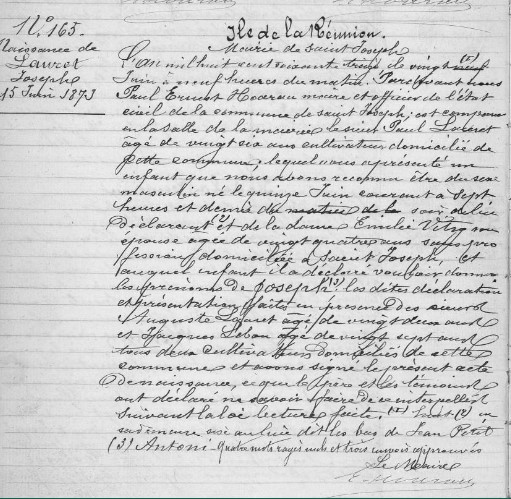 N° 165.
Naissance de
Lauret
Joseph
15 Juin 1873
Ile de la Réunion.
Mairie de Saint Joseph
L'an mil huit cent soixante treize le vingt
Juin à neuf heures du matin. Par devant nous
Paul Ernest Hoarau maire et officier de l'état
civil de la commune de saint Joseph, est comparu
en la salle de la mairie le sieur Paul Lauret
âgé de vingt six ans cultivateur domicilié de
cette commune, lequel nous a présenté un
enfant que nous avons reconnu être du sexe
masculin né le quinze Juin courant à sept
heures et demie du matin de la soir de lui
Déclarant (2) et de la dame Emilie Vitry son
épouse agée de vingt quatre ans sans pro
fession domiciliée à Saint Joseph, et
auquel enfant il a déclaré vouloir donner
les prénoms de Joseph (3) les dites déclaration
et présentation faites en présence des sieurs
Auguste Lauret agé de vingt deux ans
et Jacques Lebon agé de vingt sept ans
tous deux cultivateurs domiciliés de cette
commune et avons signé le présent acte
de naissance, ce que le père et les témoins
ont déclaré ne savoir faire de ce interpellés
suivant la loi lecture faite, huit (2) en
sa demeure sise au lieu dit les bas de Jean Petit
(3) Antoni - Quatre mots rayés nuls et trois renvois approuvés
Le Maire